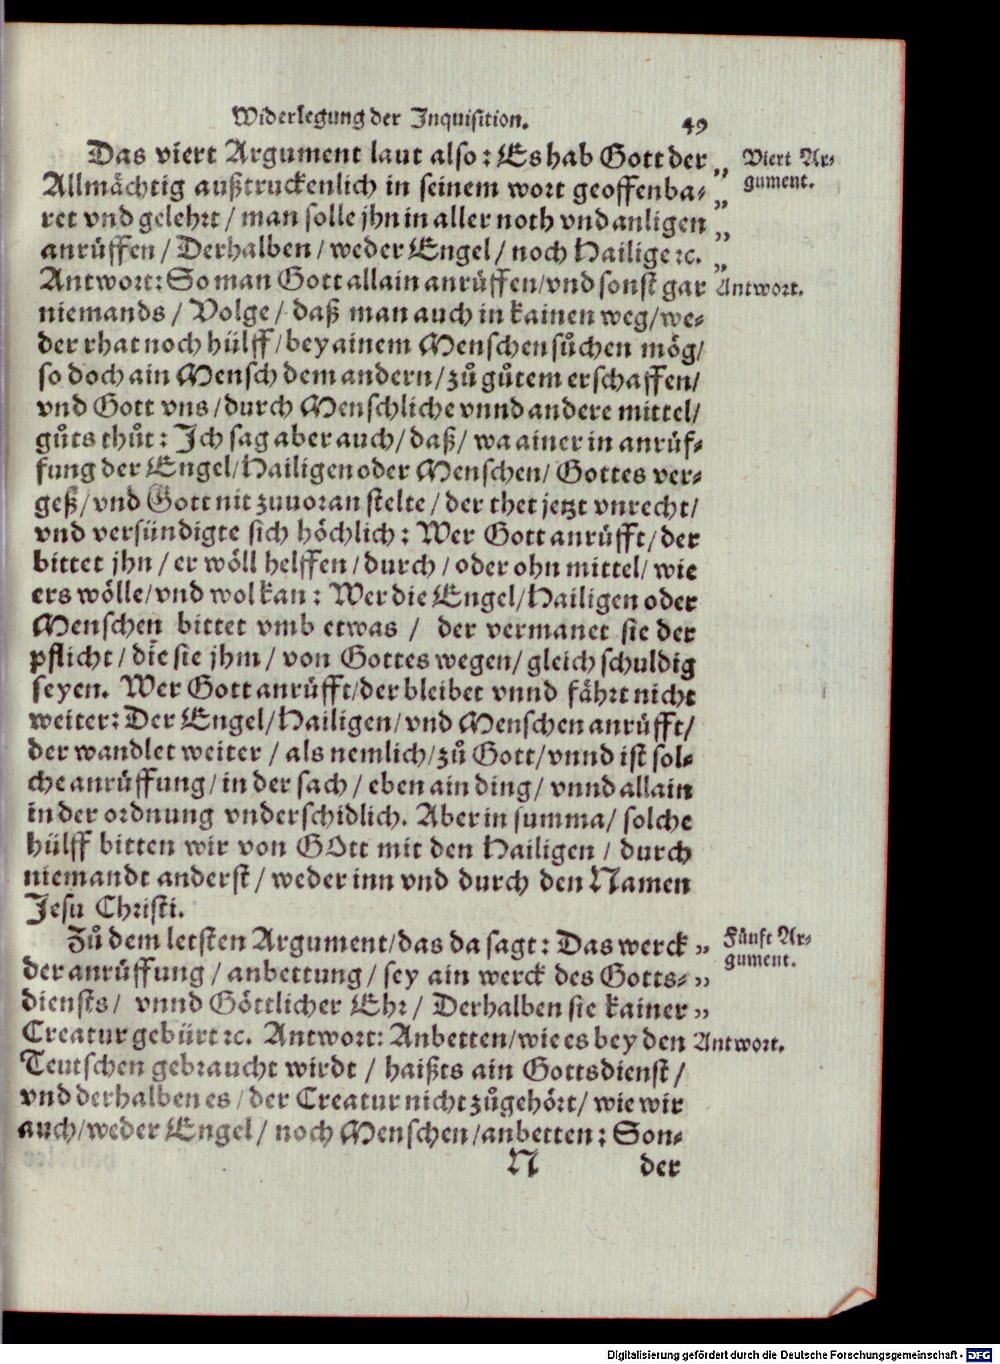 Widerlegung der Inquisition. 49
Das viert Argument laut also: Es hab Gott der „ Viert Ar-
Allmächtig außtruckenlich in seinem wort geoffenba- „ gument.
ret vnd gelehrt / man solle jhn in aller noth vnd anligen „
anrüffen / Derhalben / weder Engel / noch Hailige ꝛc. „
Antwort: So man Gott allain anrüffen / vnd sonst gar Antwort.
niemands / Volge / daß man auch in kainen weg / we-
der rhat noch hülff / bey ainem Menschen sůchen mög /
so doch ain Mensch dem andern / zů gůtem erschaffen /
vnd Gott vns / durch Menschliche vnnd andere mittel /
gůts thůt: Ich sag aber auch / daß / wa ainer in anrüf-
fung der Engel / Hailigen oder Menschen / Gottes ver-
geß / vnd Gott nit zuuoran stelte / der thet jetzt vnrecht /
vnd versündigte sich höchlich: Wer Gott anrüfft / der
bittet jhn / er wöll helffen / durch / oder ohn mittel / wie
ers wölle / vnd wol kan: Wer die Engel / Hailigen oder
Menschen bittet vmb etwas / der vermanet sie der
pflicht / die sie jhm / von Gottes wegen / gleich schuldig
seyen. Wer Gott anrüfft / der bleibet vnnd fährt nicht
weiter: Der Engel / Hailigen / vnd Menschen anrüfft /
der wandlet weiter / als nemlich / zů Gott / vnnd ist sol-
che anrüffung / in der sach / eben ain ding / vnnd allain
in der ordnung vnderschidlich. Aber in summa / solche
hülff bitten wir von GOtt mit den Hailigen / durch
niemandt anderst / weder inn vnd durch den Namen
Jesu Christi.
Zů dem letsten Argument / das da sagt: Das werck „ Fünft Ar-
der anrüffung / anbettung / sey ain werck des Gotts- „ gument.
diensts / vnnd Göttlicher Ehr / Derhalben sie kainer „
Creatur gebürt ꝛc. Antwort: Anbetten / wie es bey den Antwort.
Teutschen gebraucht wirdt / haißts ain Gottsdienst /
vnd derhalben es / der Creatur nicht zůgehört / wie wir
auch / weder Engel / noch Menschen / anbetten: Son-
N der
Digitalisierung gefördert durch die Deutsche Forschungsgemeinschaft - DFG